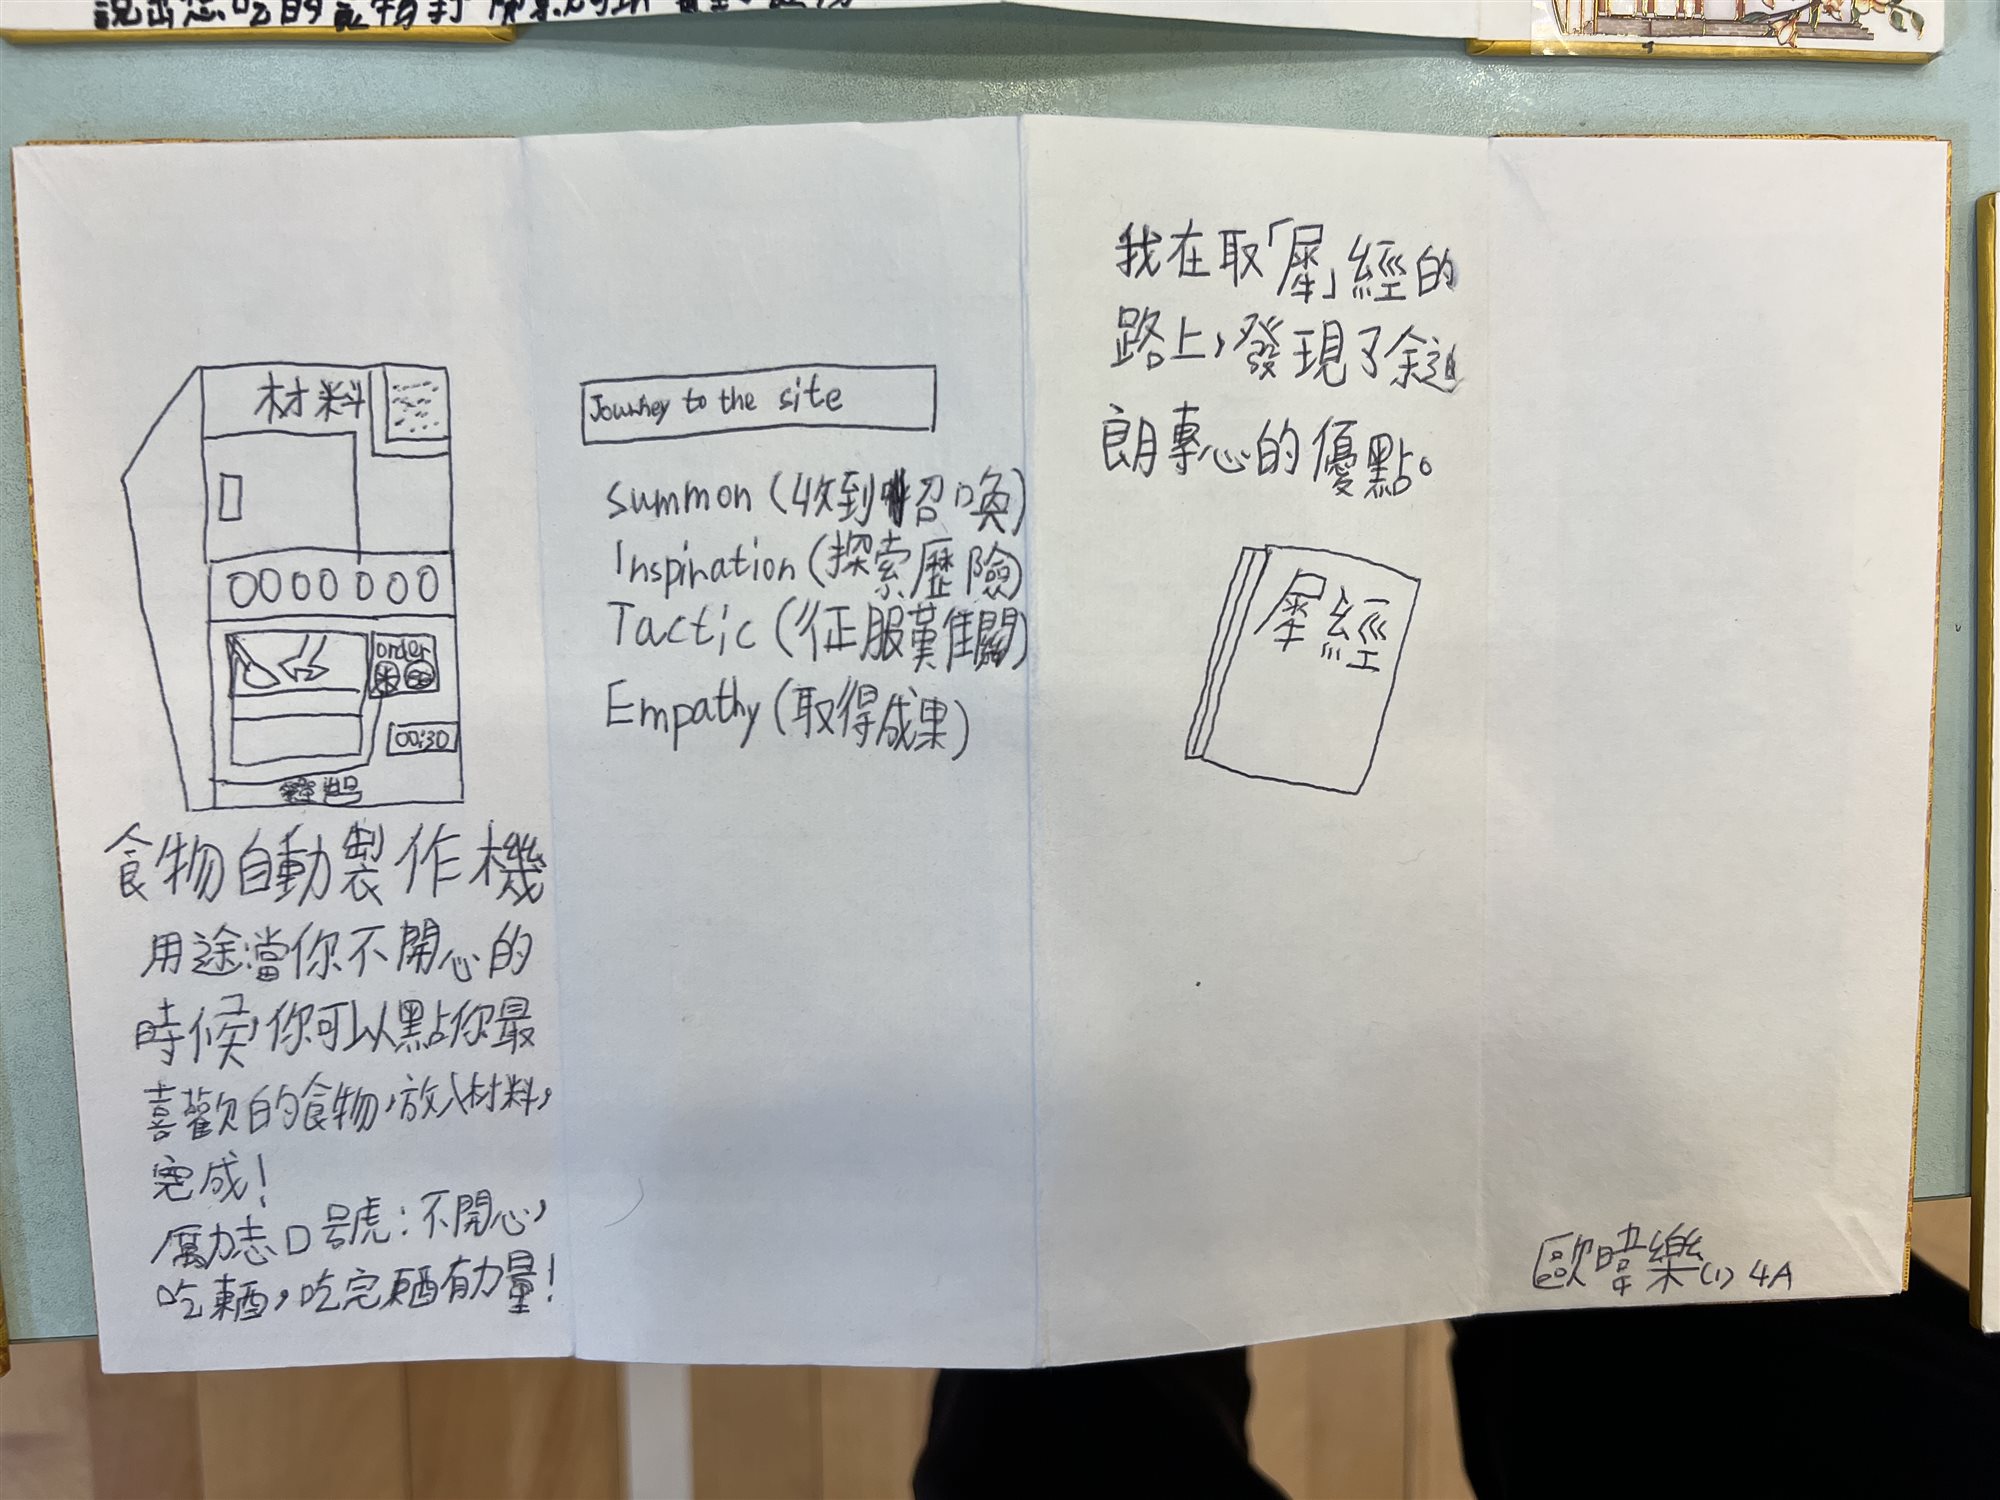 材料
order
00:30
食物自動製作機
用途:當你不開心的
時候,你可以點你最
喜歡的食物,放入材料,
完成!
勵志口號:不開心,
吃東西,吃完東西有力量!
Journey to the site
Summon (收到召喚)
Inspiration (探索歷險)
Tactic (征服難關)
Empathy (取得成果)
我在取「犀」經的
路上,發現了余逈
朗專心的優點。
犀經
歐暐樂(1) 4A